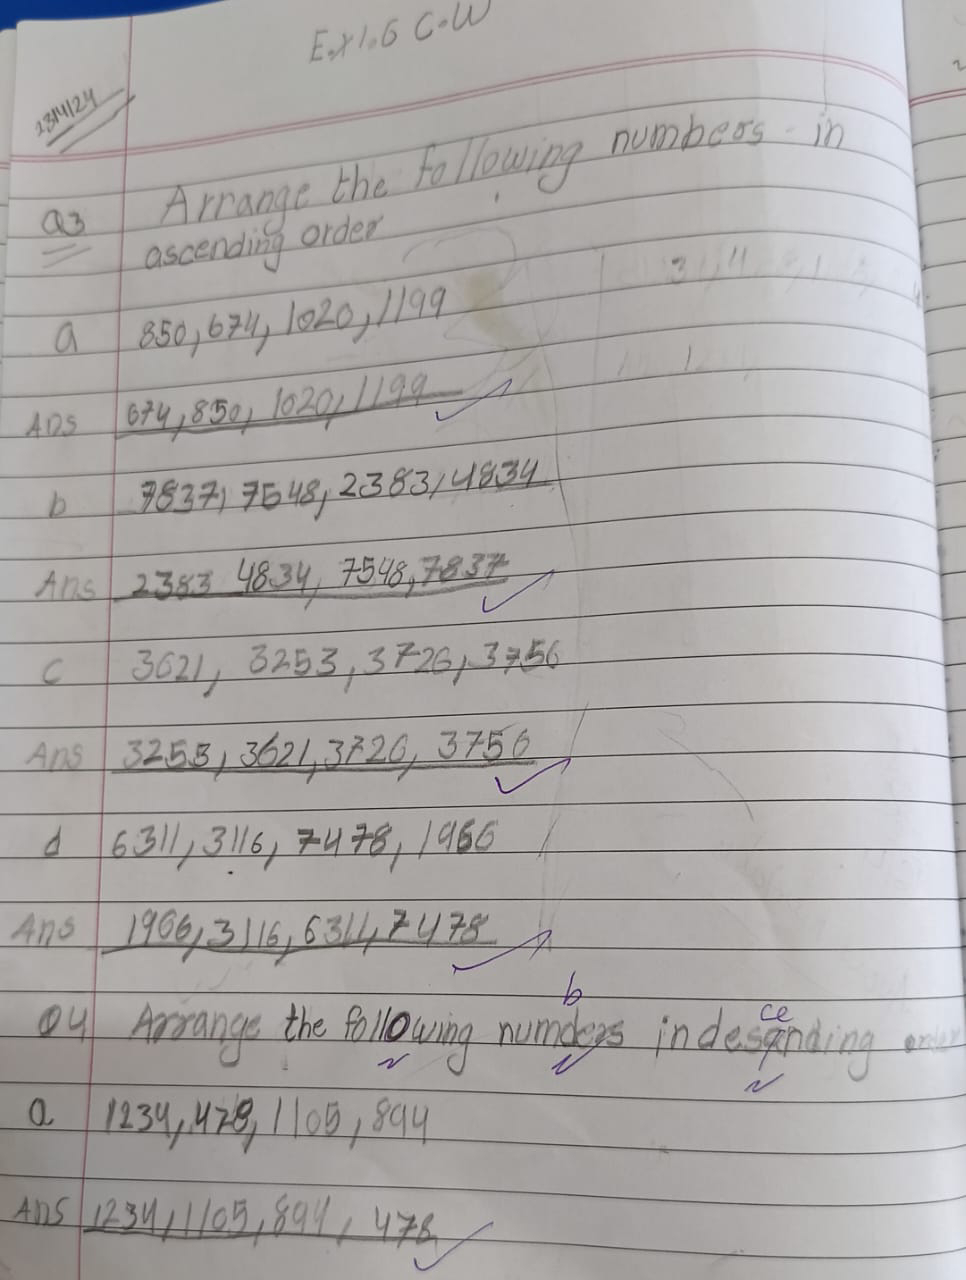 Ex1.6 C.W
23/4/24
Q3 Arrange the following numbers in
ascending order
a 850, 674, 1020, 1199
Ans 674, 850, 1020, 1199
b 7837, 7548, 2383, 4834
Ans 2383 4834, 7548, 7837
c 3621, 3253, 3726, 3756
Ans 3253, 3621, 3726, 3756
d 6311, 3116, 7478, 1966
Ans 1966, 3116, 6311, 7478
b ce
Q4 Arrange the following numders in desanding order
a 1234, 478, 1105, 894
Ans 1234, 1105, 894, 478